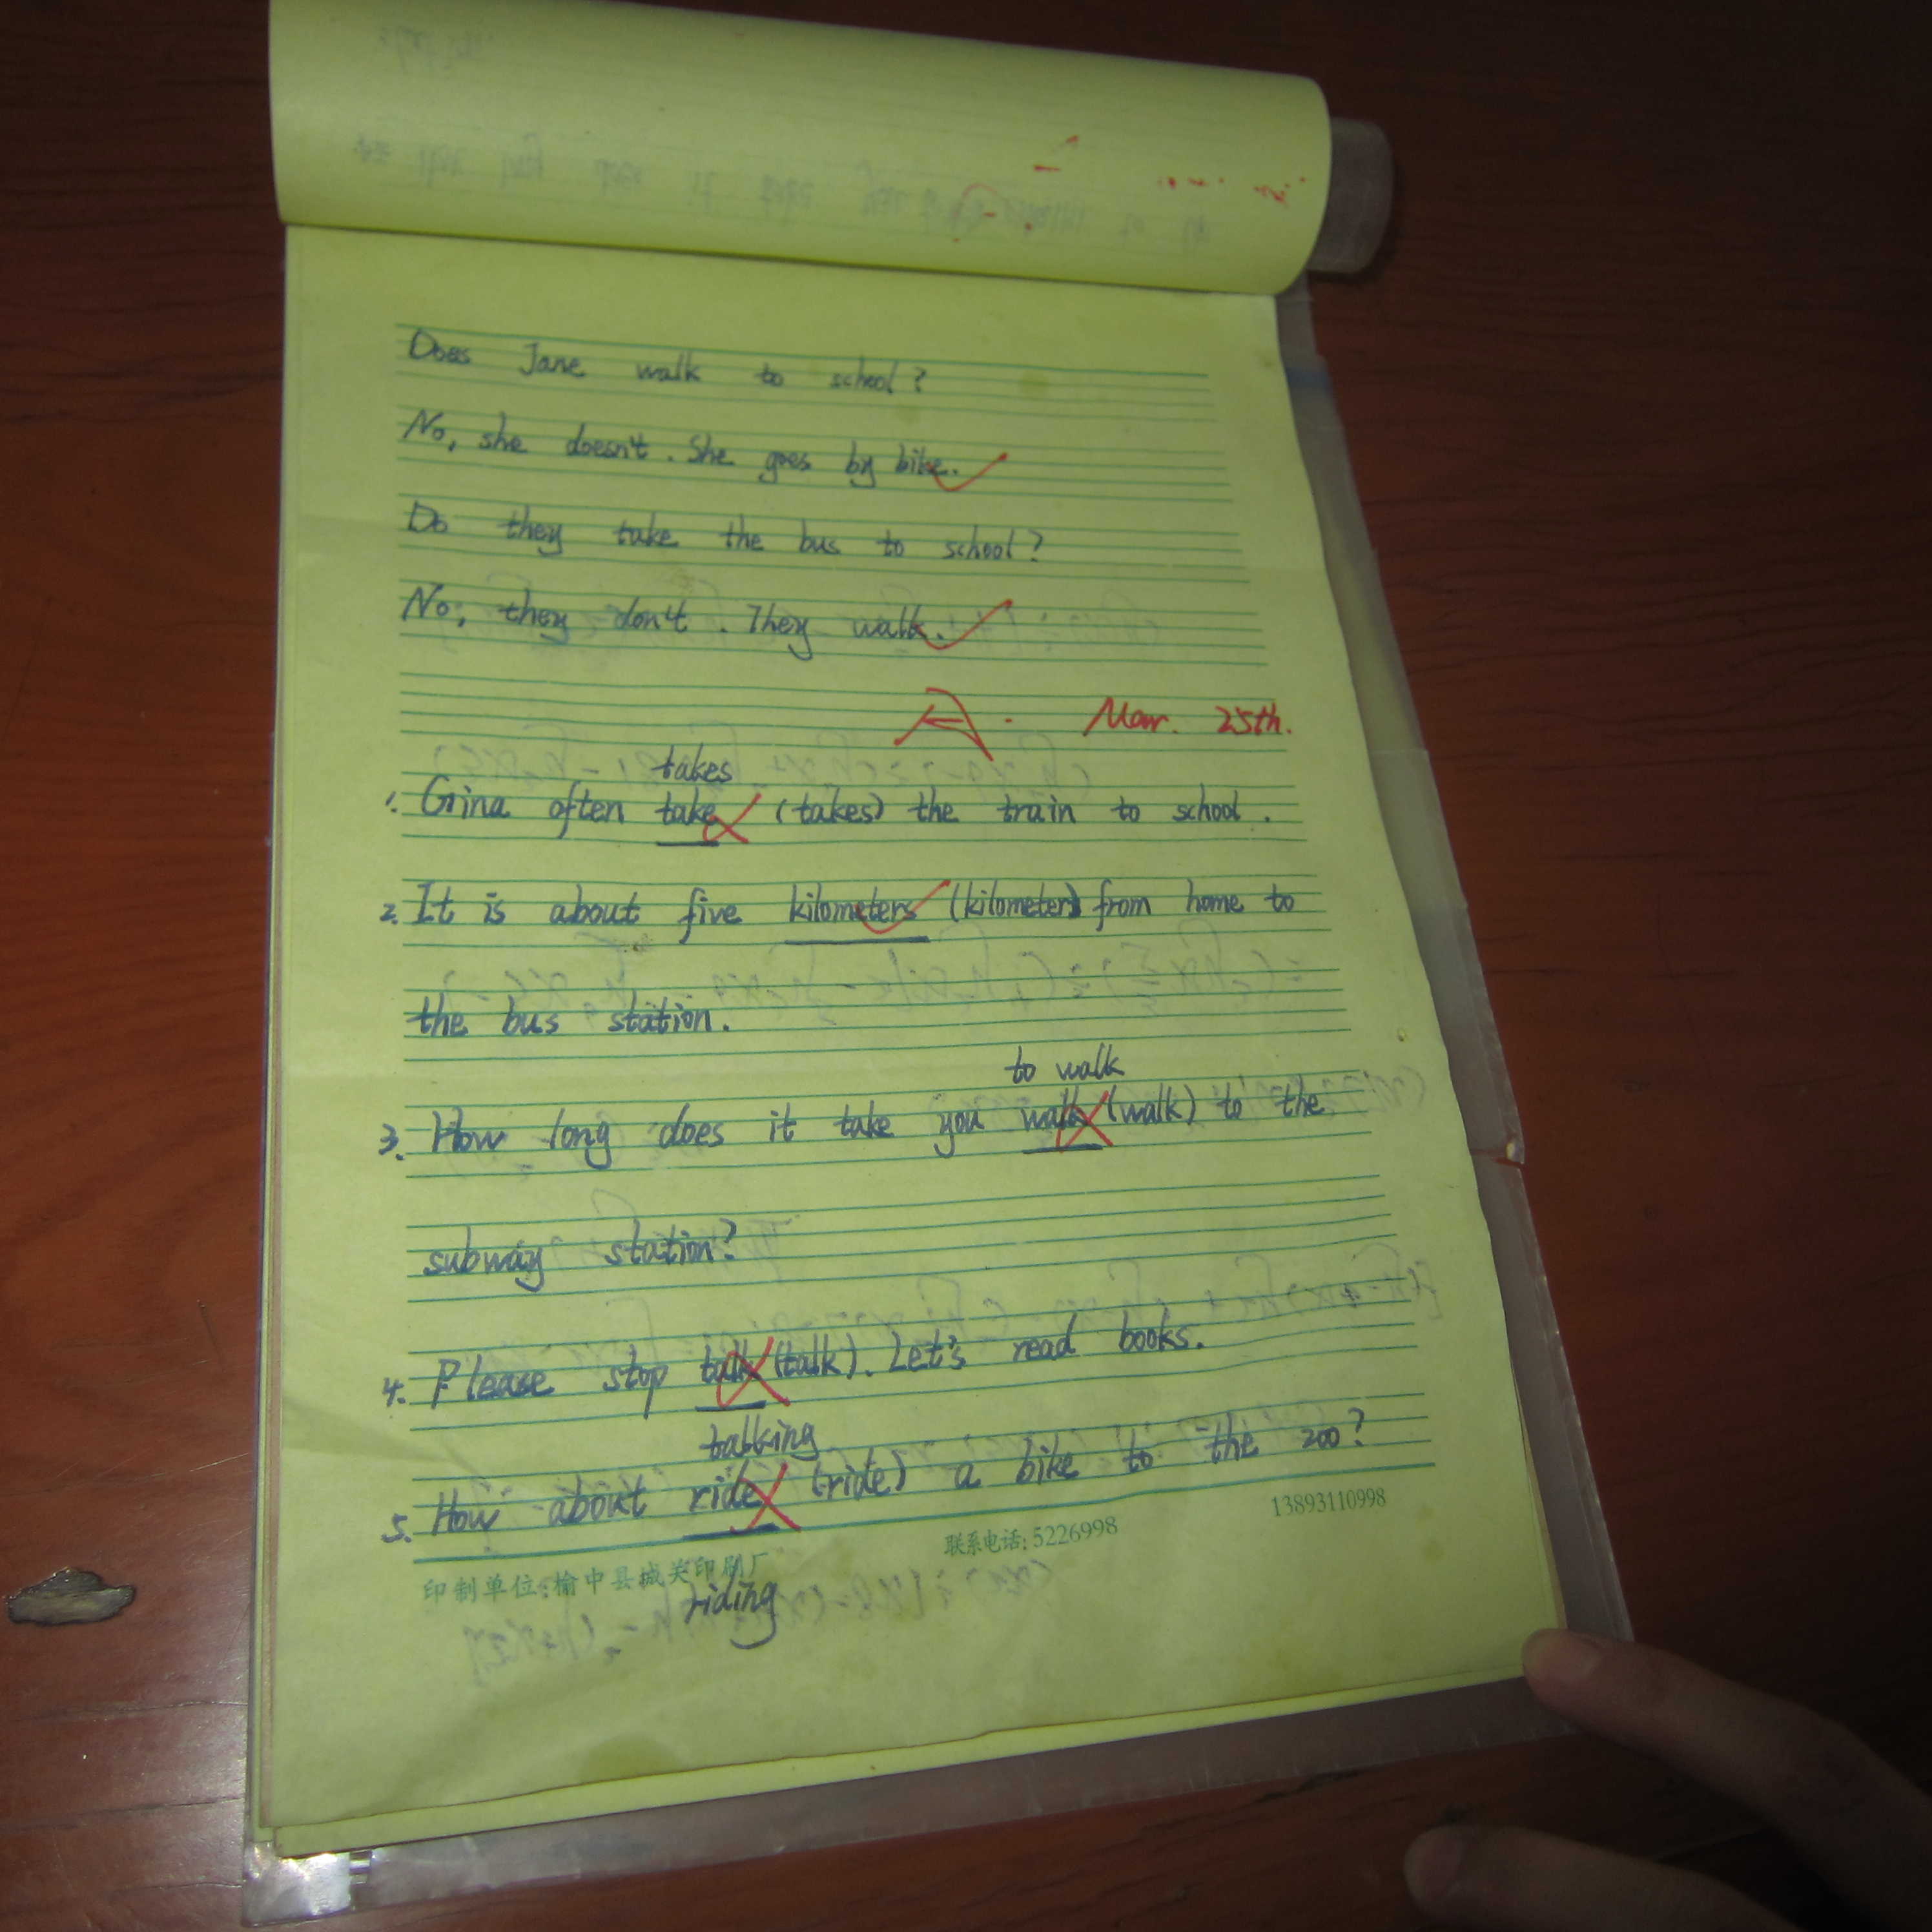 Does Jane walk to school?
No, she doesn't. She goes by bike.
Do they take the bus to school?
No, they don't. They walk.
A. Mar. 25th.
takes
1. Gina often take (takes) the train to school.
2. It is about five kilometers (kilometer) from home to
the bus station.
to walk
3. How long does it take you walk (walk) to the
subway station?
4. Please stop talk (talk). Let's read books.
talking
5. How about ride (ride) a bike to the zoo?
印制单位:榆中县城关印刷厂 联系电话:5226998 13893110998
riding